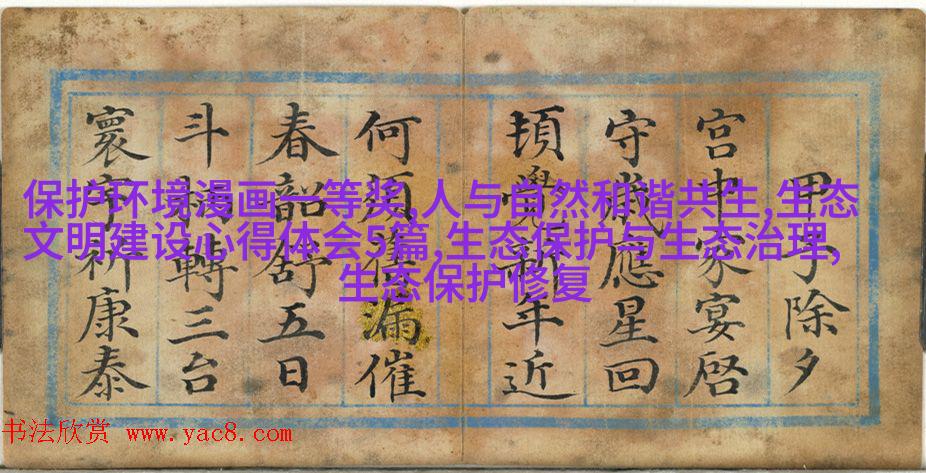 甲子除夕
宮中家宴啓
守歲應星回
頓覺新年近
何須舊漏催
春韶舒五日
斗柄轉三台
寰宇祈康泰
保护环境漫画一等奖,人与自然和谐共生,生态
文明建设心得体会5篇,生态保护与生态治理,
生态保护修复
书法欣赏 www.yac8.com